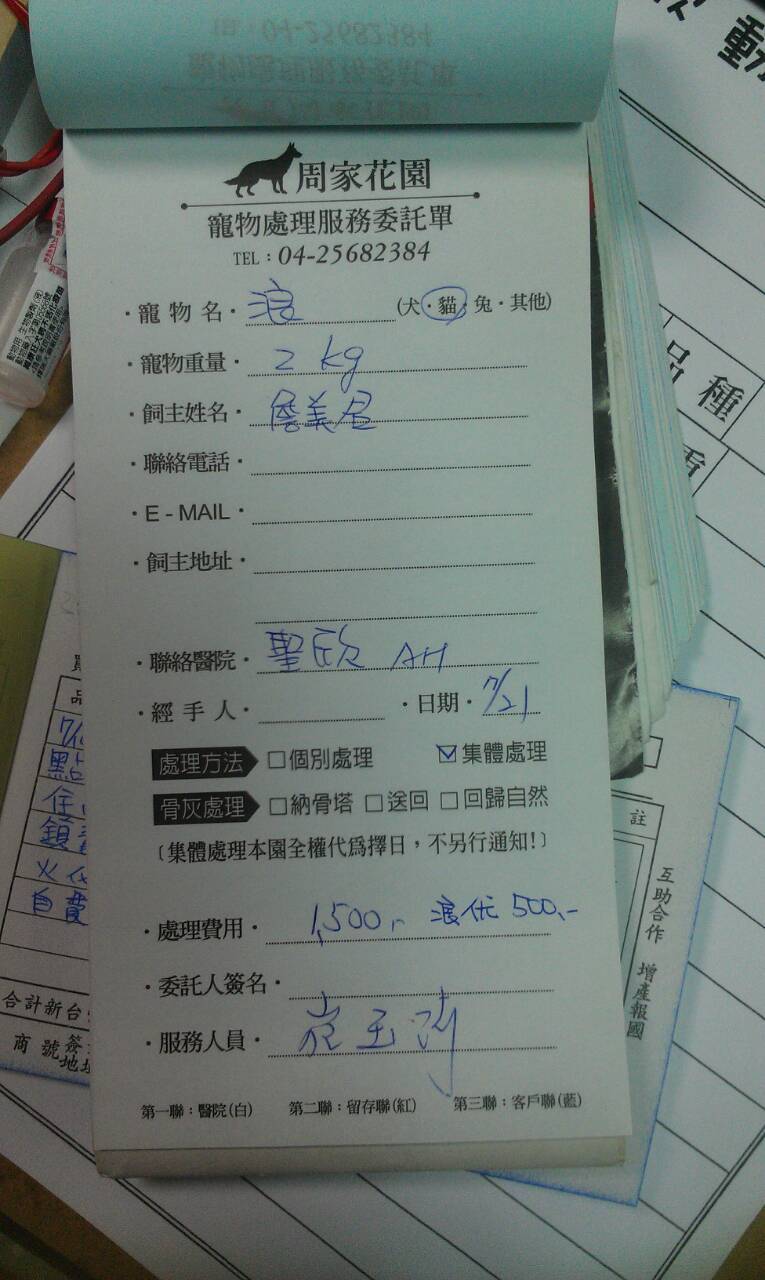 周家花園
寵物處理服務委託單
TEL：04-25682384
·寵物名· 浪 (犬·貓·兔·其他)
·寵物重量· 2 kg
·飼主姓名· 詹美君
·聯絡電話·
·E-MAIL·
·飼主地址·
·聯絡醫院· 聖欣 AH
·經手人· ·日期· 7/21
處理方法 □個別處理 ☑集體處理
骨灰處理 □納骨塔 □送回 □回歸自然
〔集體處理本園全權代為擇日，不另行通知!〕
·處理費用· 1,500,- 浪優 500,-
·委託人簽名·
·服務人員·
第一聯：醫院(白) 第二聯：留存聯(紅) 第三聯：客戶聯(藍)
品種
註
互助合作 增產報國
自費
合計新台
商號簽
地址